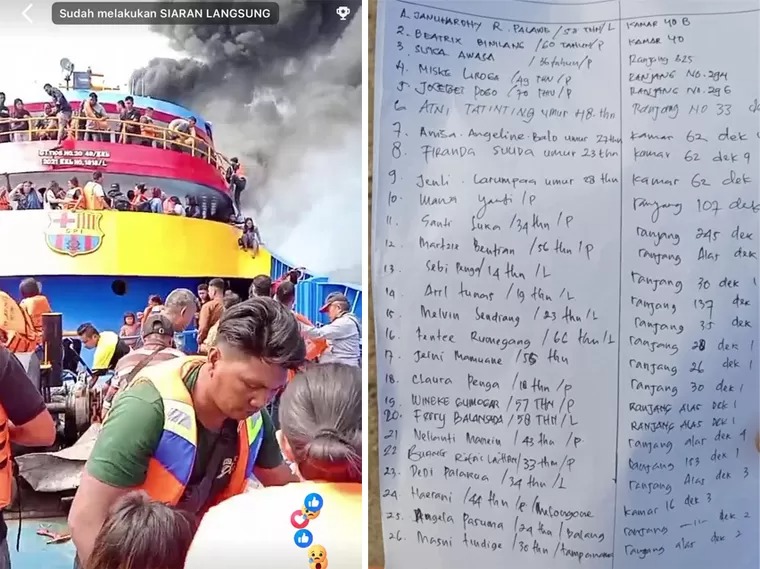 Sudah melakukan SIARAN LANGSUNG
GT.1106 NO.20
2021 KKb NO.1818/L
GPI
1. JANUHARDHY R. PALAWE / 50 THN / L KAMAR 40 B
2. BEATRIX BINILANG / 60 TAHUN / P KAMAR 40
3. SUSKA AWASA / 36 tahun / P Ranjang 325
4. MISKE LIROGA / 49 THN / P RANJANG NO. 294
5. POGO / 70 THN / P RANJANG NO. 296
6. ATNI TATINTING umur 48 thn Ranjang NO 33
7. Anisa Angeline Balo umur 27 thn kamar 62 dek
8. FIRANDA SUUDA umur 23 thn kamar 62 dek
9. Jenli Larumpara umur 28 thn kamar 62 dek
10. Yanti / P ranjang 107 dek
11. Santi Suka / 34 thn / P ranjang 245 dek
12. Martsie Bentian / 56 thn / P ranjang Alas dek
13. Sebi Penga / 14 thn / L ranjang 30 dek 1
14. Aril tunas / 19 thn / L ranjang 137 dek
15. Melvin Sendrang / 23 thn / L ranjang 35 dek
16. Fentee Rumegang / 66 thn / L ranjang 28 dek 1
17. Jerni Mamuane / 55 thn ranjang 26 dek 1
18. Claura Penga / 18 thn / P ranjang 30 dek 1
19. WINEKE GUMOGAR / 57 THN / P RANJANG ALAS DEK 1
20. FERRY BALANSADA / 58 THN / L RANJANG ALAS DEK 1
21. Nelianti Manein / 43 thn / P ranjang alas dek 4
22. / 33 thn / P ranjang 153 dek 1
23. Deni Palakua / 34 thn / L ranjang Alas dek 3
24. Haerani / 44 thn / P / kamar 16 dek 3
25. Angela Pasuma / 24 thn / Balang ranjang -"- dek 2
26. Masni tindige / 30 thn / ranjang alas dek 2